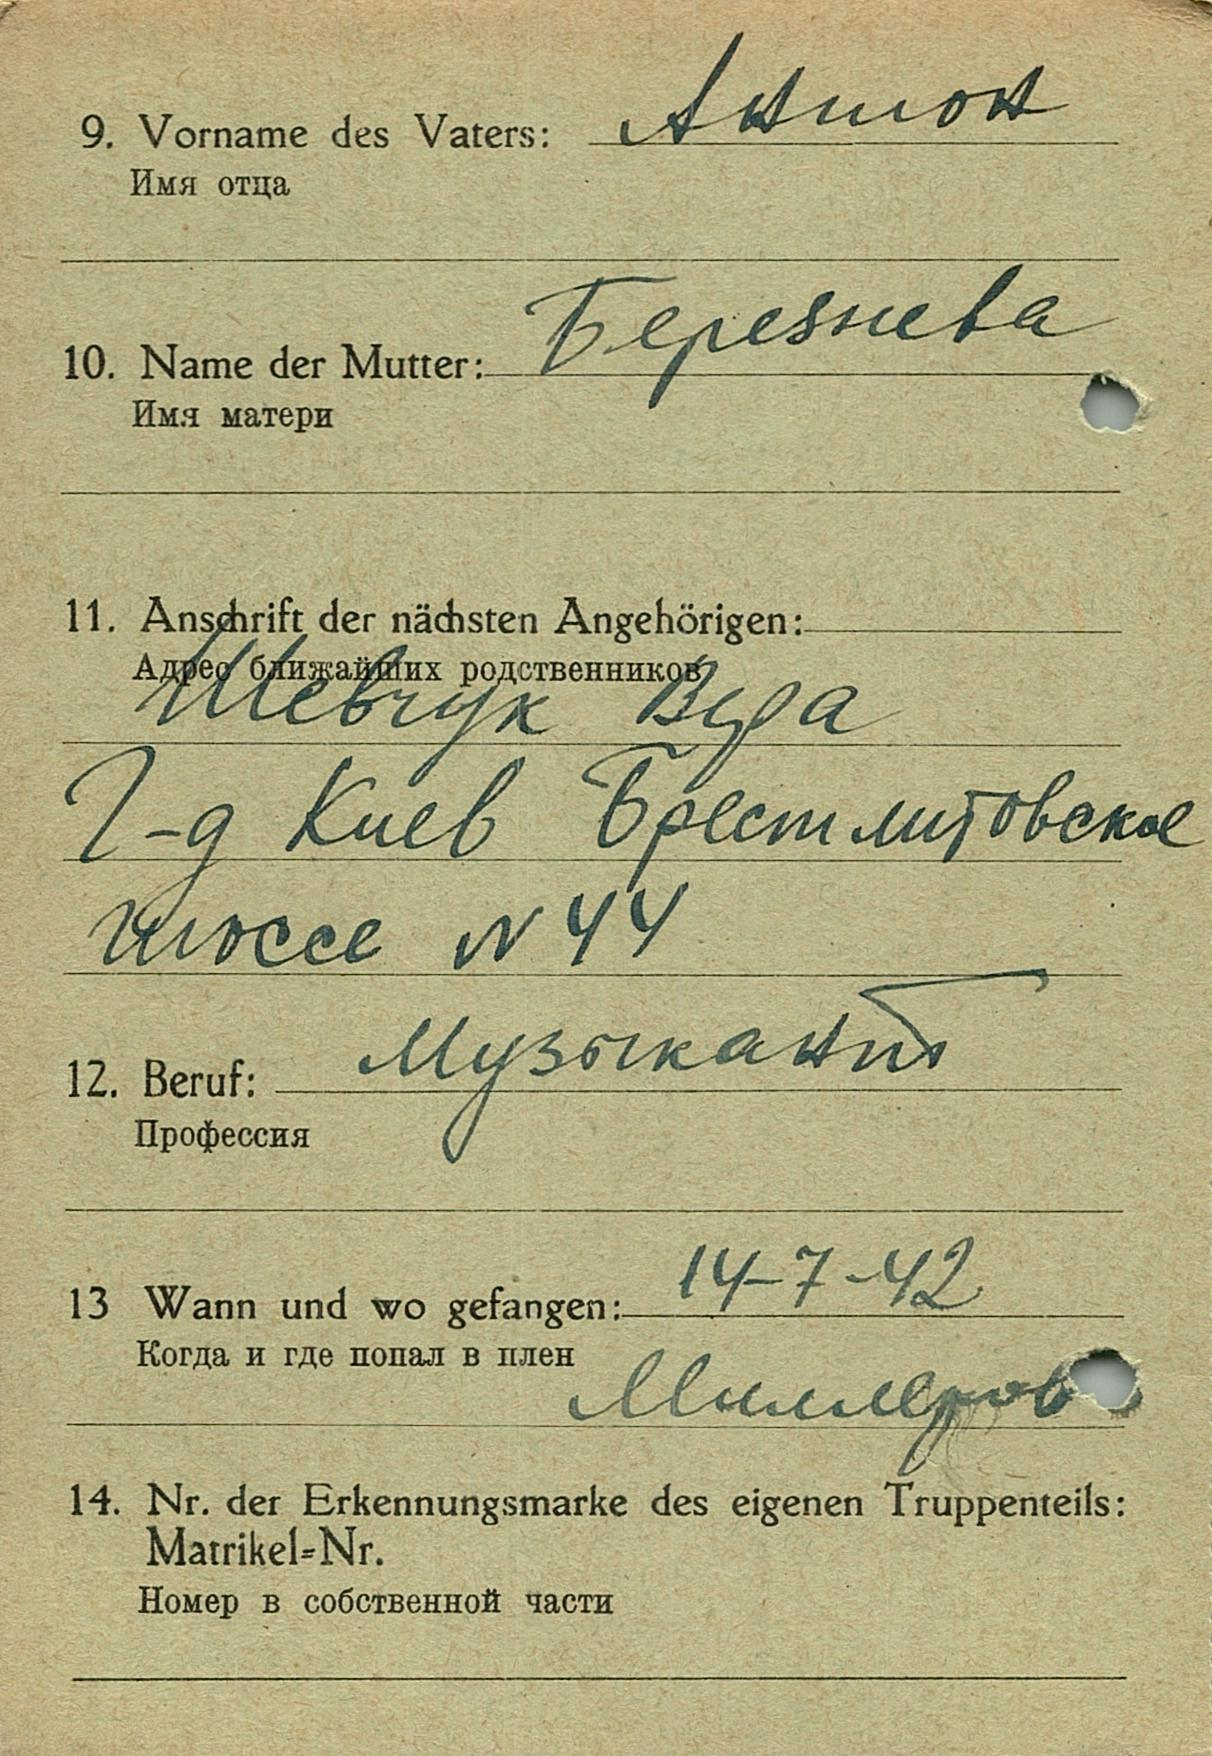 9. Vorname des Vaters: Антон
Имя отца
10. Name der Mutter: Березнева
Имя матери
11. Anschrift der nächsten Angehörigen:
Адрес ближайших родственников
Шевчук Вера
Г-д Киев Брестлитовское
шоссе N 44
12. Beruf: Музыкант
Профессия
13 Wann und wo gefangen: 14-7-42
Когда и где попал в плен
Миллерово
14. Nr. der Erkennungsmarke des eigenen Truppenteils:
Matrikel=Nr.
Номер в собственной части